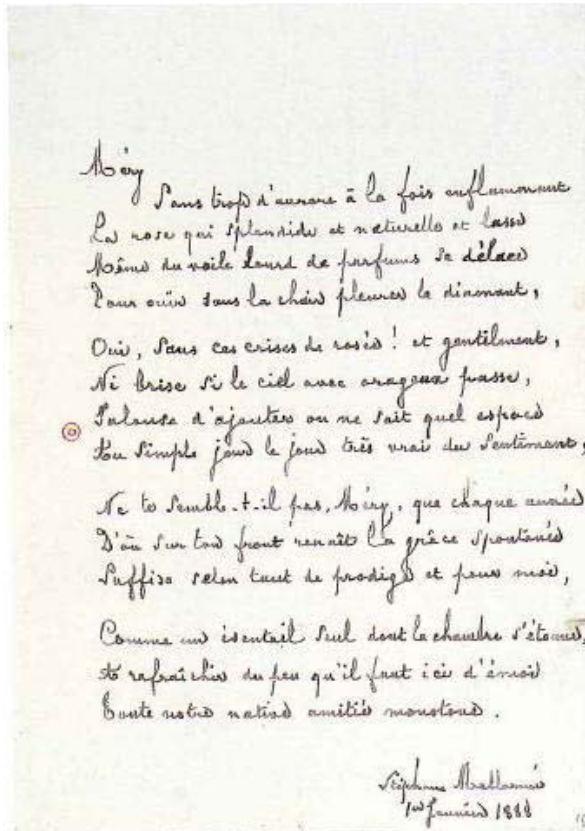 Méry
Sans trop d'aurore à la fois enflammant
La rose qui splendide et naturelle et lasse
Même du voile lourd de parfums se délace
Pour ouïr sous la chair pleurer le diamant,
Oui, sans ces crises de rosée ! et gentiment,
Ni brise si le ciel avec orageux passe,
Jalouse d'ajouter on ne sait quel espace
Au simple jour le jour très vrai du sentiment,
Ne te semble-t-il pas, Méry, que chaque année
D'où sur ton front renaît la grâce spontanée
Suffise selon tant de prodige et pour moi,
Comme un éventail seul dont la chambre s'étonne,
A rafraîchir du peu qu'il faut ici d'émoi
Toute notre native amitié monotone.
Stéphane Mallarmé
1er Janvier 1888